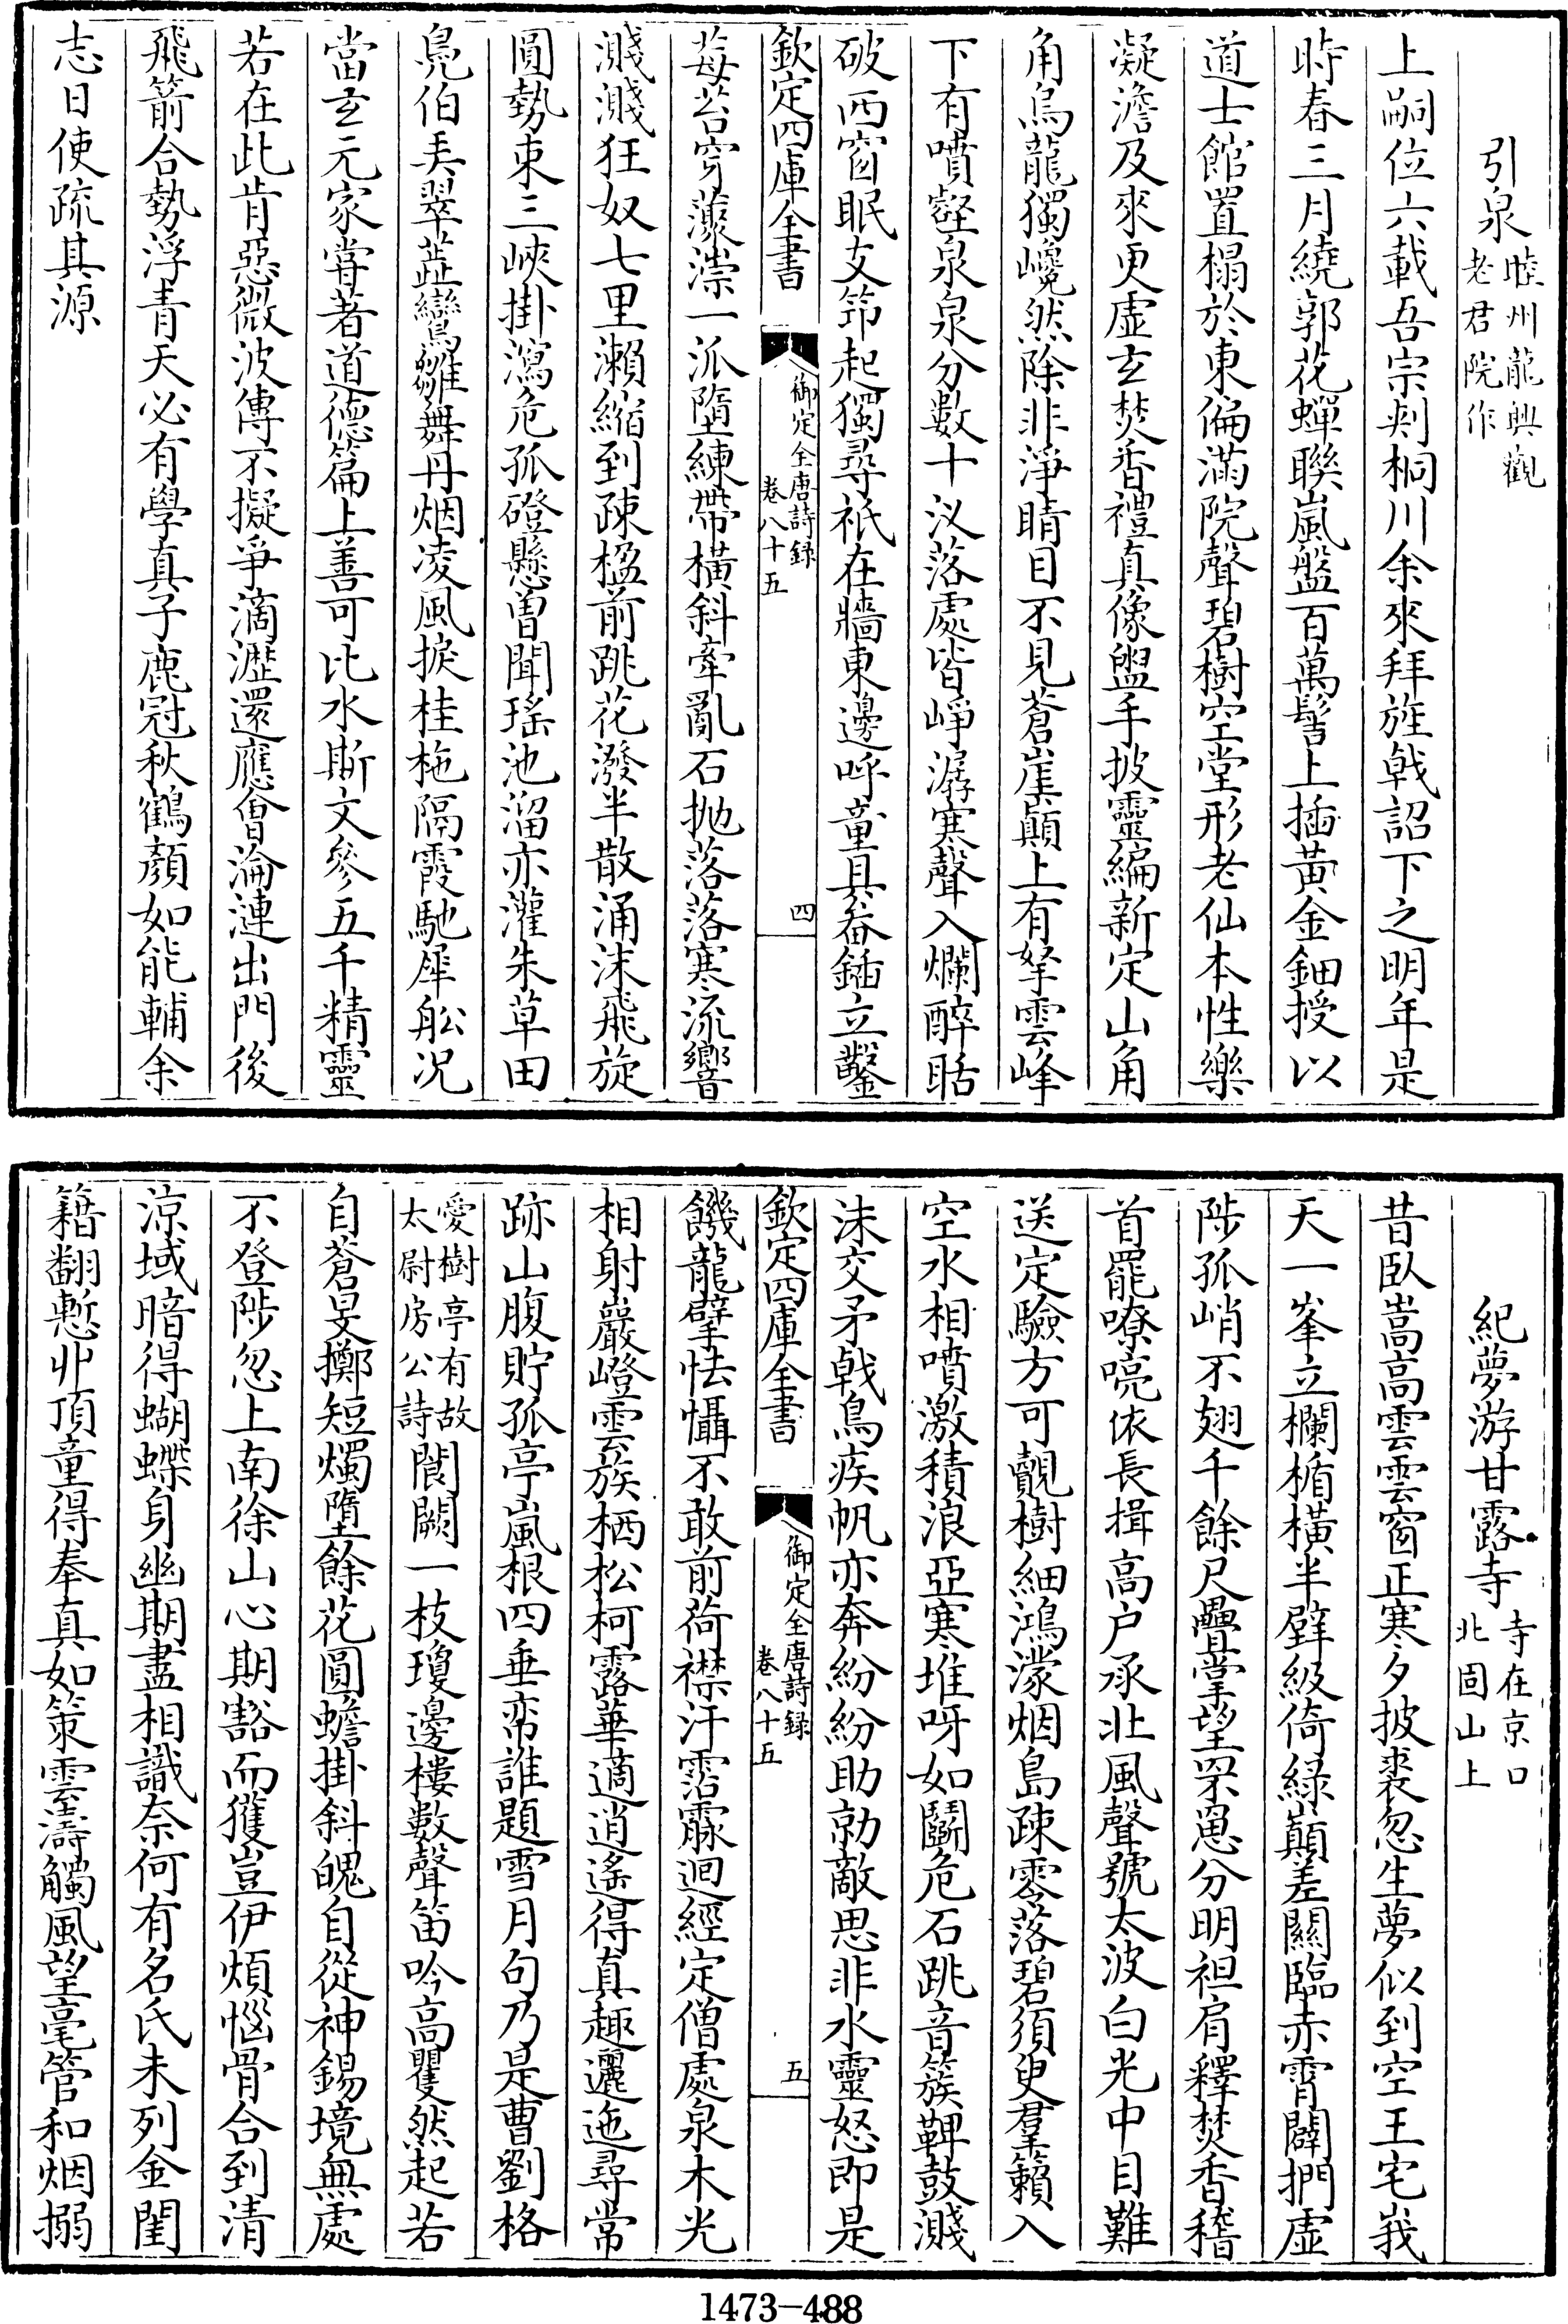 引泉睦州龍興觀老君院作
上嗣位六載吾宗刾桐川余來拜旌戟詔下之明年是
時春三月繞郭花蟬聯嵐盤百萬髻上插黃金鈿授以
道士館置榻於東偏滿院聲碧樹空堂形老仙本性樂
凝澹及來更虛玄焚香禮真像盥手披靈編新定山角
角烏龍獨巉然除非淨晴日不見蒼崖巔上有拏雲峰
下有噴壑泉泉分數十汊落處皆崢潺寒聲入爛醉聒
破西窗眠支笻起獨尋祇在牆東邊呼童具畚鍤立鑿
欽定四庫全書
御定全唐詩録
卷八十五
四
莓苔穿濛漴一派墮練帶橫斜牽亂石拋落落寒流響
濺濺狂奴七里瀨縮到疎楹前跳花潑半散涌沫飛旋
圓勢束三峽掛瀉危孤磴懸曾聞瑤池溜亦灌朱草田
鳧伯弄翠蘂鸞雛舞丹烟凌風捩桂柂隔霞馳犀船况
當玄元家嘗著道德篇上善可比水斯文參五千精靈
若在此肯惡微波傳不擬爭滴瀝還應會淪漣出門後
飛箭合勢浮青天必有學真子鹿冠秋鶴顏如能輔余
志日使疏其源
紀夢游甘露寺寺在京口北固山上
昔臥嵩高雲雲窗正寒夕披裘忽生夢似到空王宅峩
天一峯立欄楯橫半壁級倚緑巔差關臨赤霄闢捫虛
陟孤峭不翅千餘尺疊掌望罘罳分明袒肩釋焚香稽
首罷嘹喨依長揖高户承北風聲號太波白光中目難
送定驗方可覿樹細鴻濛烟島疎零落碧須臾羣籟入
空水相噴激積浪亞寒堆呀如鬭危石跳音簇鞞鼓濺
沫交矛戟鳥疾帆亦奔紛紛助勍敵思非水靈怒即是
欽定四庫全書
御定全唐詩録
卷八十五
五
饑龍擘怯懾不敢前荷襟汗霑霢迴經定僧處泉木光
相射巖嶝雲族栖松柯露華適逍遙得真趣邐迤尋常
跡山腹貯孤亭嵐根四垂帟誰題雪月句乃是曹劉格
愛樹亭有故太尉房公詩閬闕一枝瓊邊樓數聲笛吟高矍然起若
自蒼旻擲短燭墮餘花圓蟾掛斜魄自從神錫境無處
不登陟忽上南徐山心期豁而獲豈伊煩惱骨合到清
涼域暗得蝴蝶身幽期盡相識奈何有名氏未列金閨
籍翻慙丱頂童得奉真如策雲濤觸風望毫管和烟搦
1473-488